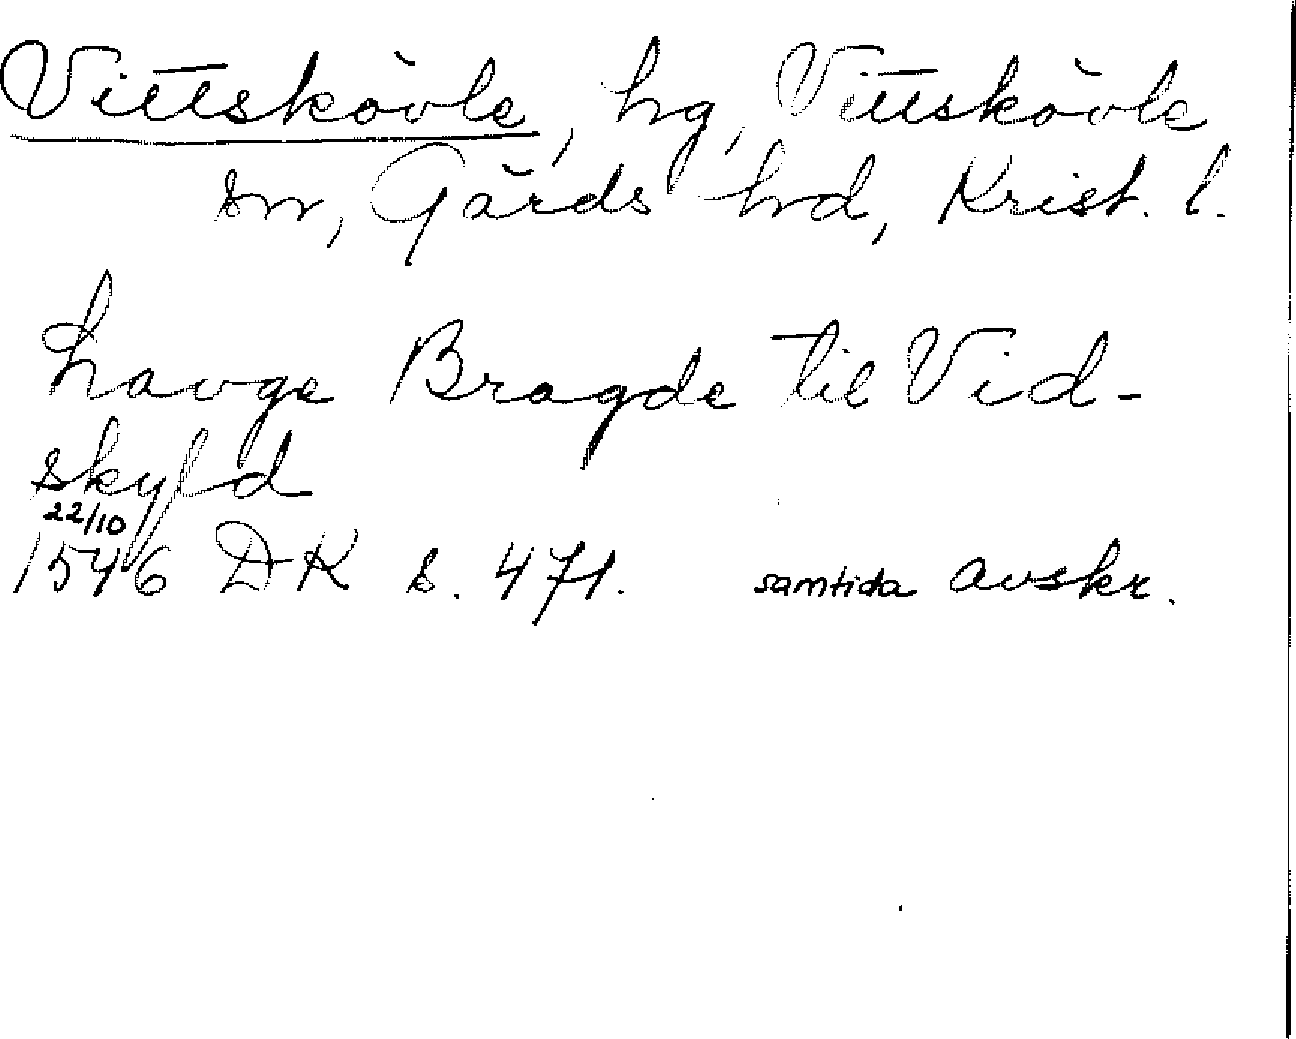 Vittskövle, hg, Vittskövle
sn, Gärds hd, Krist. l.
Lauge Bragde til Vid-
skyfd
22/10
1546 DK s. 471. samtida avskr.